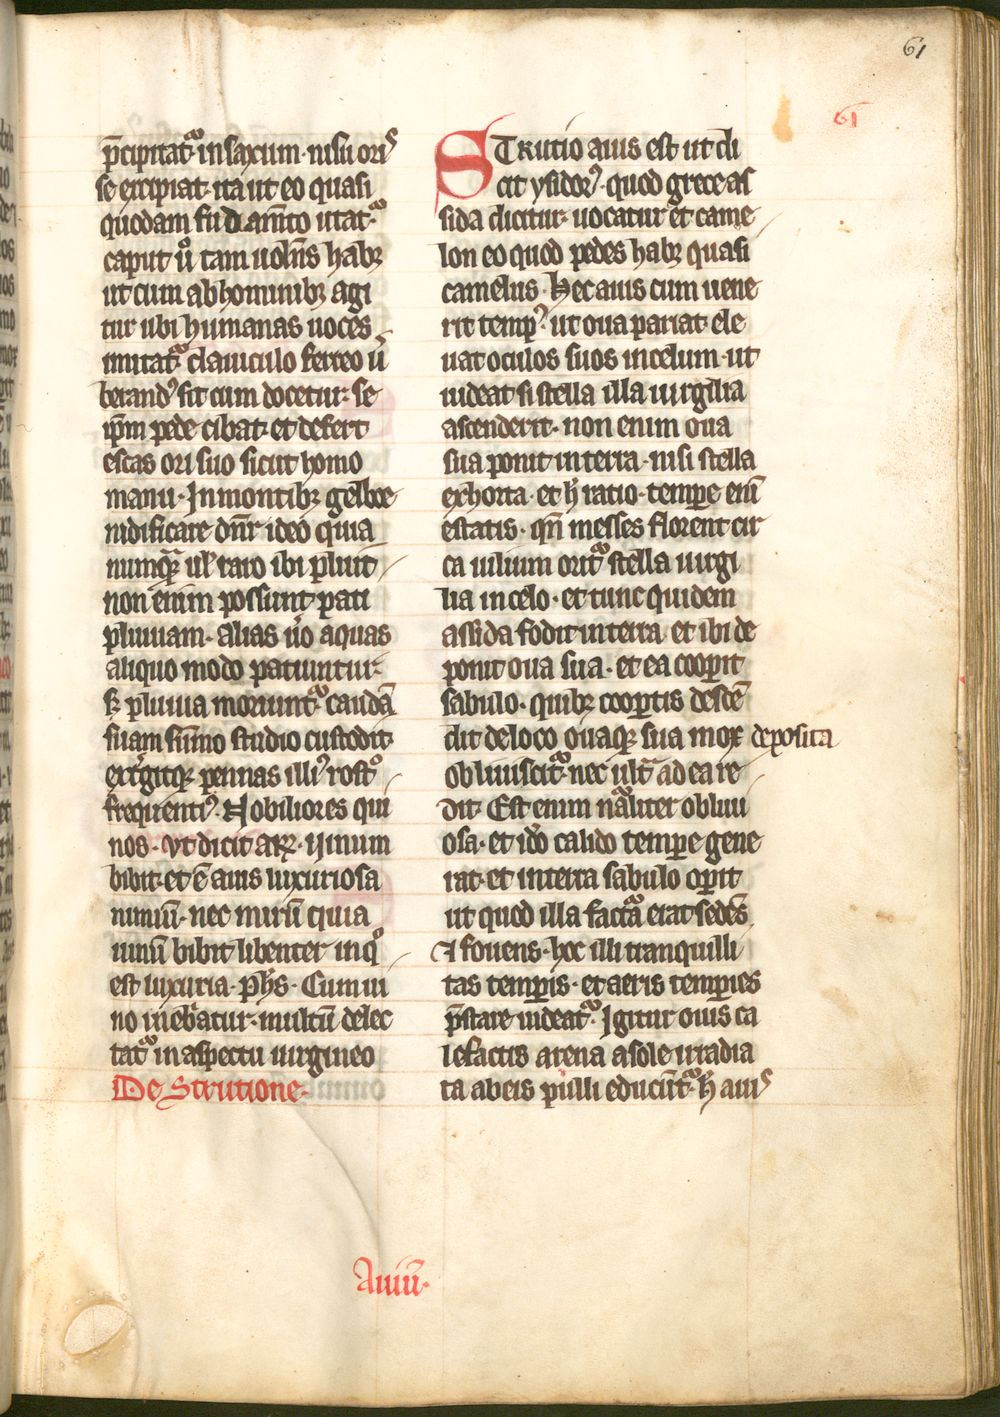 61
61
p̄cipitat᷑ in saxum · nisu oris
se excipiat · ita ut eo quasi
quodam fundam̄to utat᷑
caput ů tam uolēs habꝫ
ut cum ab hominibꝫ agi
tur ubi humanas uoces
imitat᷑ clauiculo ferreo ū
berandꝰ sit cum docetur · se
ip̄m pede cibat · et defert
escas ori suo sicut homo
manu · In montibꝫ gelboe
nidificare dr̄ ideo quia
numq̄ꝫ ul̄ raro ibi pluit
non enim possunt pati
pluuiam · Alias ůo aquas
aliquo modo patiuntur ·
sꝫ pluuia moriunt᷑ caudā
suam sūmo studio custodit ·
erigitqꝫ pennas illiꝰ rostͦ
frequentiꝰ · Nobiliores qui
nos · vt dicit arꝫ · ij inum
bibit · et ē auis luxuriosa
nimiū · nec mirū quia
uinū bibit libenter in qͦ
est luxuria · Ph̄s · Cum ui
no inebriatur · multū delec
tat᷑ in aspectu uirgineo
De Strutione ·
STrutio auis est ut di
cit ysidorꝰ · quod grece as
sida dicitur · uocatur et came
lon eo quod pedes habꝫ quasi
camelus · Hec auis cum uene
rit tempꝰ · ut oua pariat ele
uat oculos suos in celum · ut
uideat si stella illa uirgilia
ascenderit · non enim oua
sua ponit in terra · nisi stella
exhorta · et h̄ ratio · tempe enī
estatis · qn̄ messes florent cir
ca iulium orit᷑ stella uirgi
lia in celo · et tunc quidem
assida fodit in terra et ibi de
ponit oua sua · et ea coopit
sabulo · quibꝫ coopertis descē
dit de loco ouaqꝫ sua mox deposita
obliuiscit᷑ · nec ult̄ ad ea re
dit · Est enim nāliter obliui
osa · et idͦo calido tempe gene
rat · et in terra sabulo opit
ut quod illa factā erat sedēs
⁊ fouens · hoc illi tranquilli
tas tempis · et aeris temperies
p̄stare uideat᷑ · Igitur ouis ca
lefactis arena a sole irradia
ta ab eis pulli educūt᷑ · h̄ auis
Auiū ·